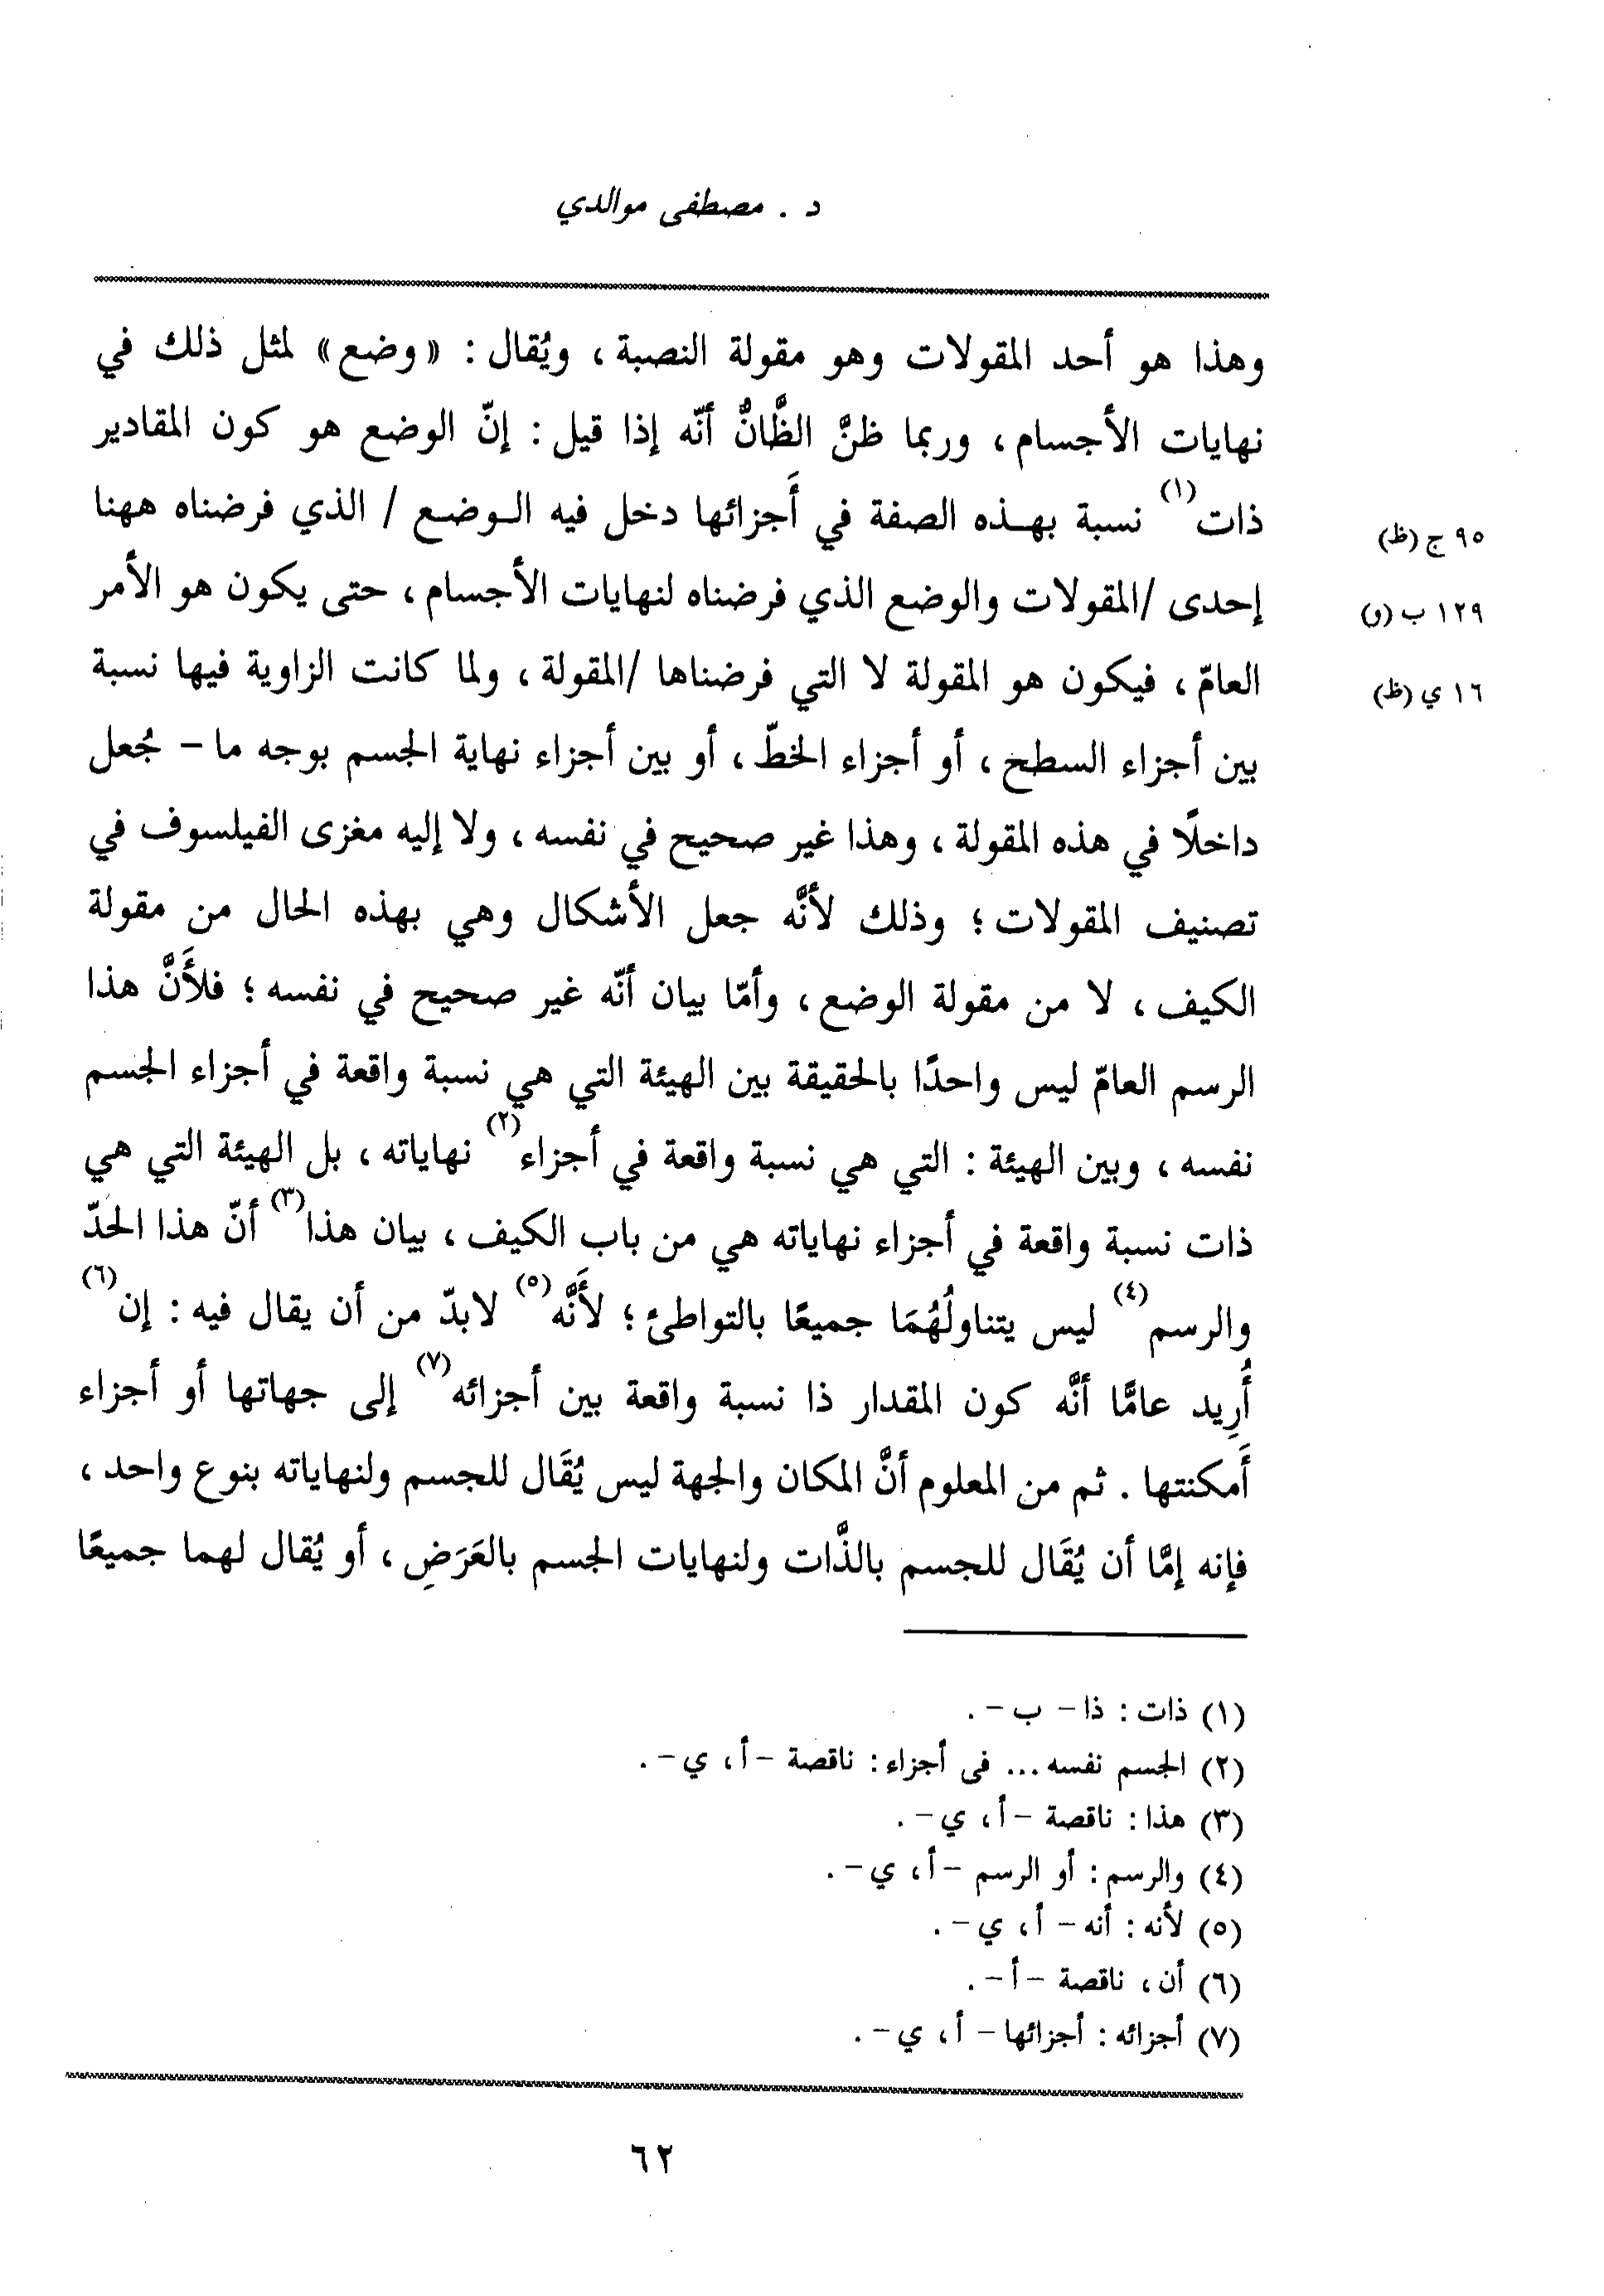 د . مصطفى موالدي
وهذا هو أحد المقولات وهو مقولة النصبة ، ويُقال : « وضع » لمثل ذلك في
نهايات الأجسام ، وربما ظنَّ الظَّانُّ أنّه إذا قيل : إنّ الوضع هو كون المقادير
ذات(١) نسبة بهـذه الصفة في أَجزائها دخل فيه الـوضـع / الذي فرضناه ههنا
٩٥ ج (ظ)
إحدى /المقولات والوضع الذي فرضناه لنهايات الأجسام ، حتى يكون هو الأمر
١٢٩ ب (و)
العامّ ، فيكون هو المقولة لا التي فرضناها /المقولة ، ولما كانت الزاوية فيها نسبة
١٦ ي (ظ)
بين أجزاء السطح ، أو أجزاء الخطّ ، أو بين أجزاء نهاية الجسم بوجه ما - جُعل
داخلًا في هذه المقولة ، وهذا غير صحيح في نفسه ، ولا إليه مغزى الفيلسوف في
تصنيف المقولات ؛ وذلك لأنَّه جعل الأشكال وهي بهذه الحال من مقولة
الكيف ، لا من مقولة الوضع ، وأمّا بيان أنّه غير صحيح في نفسه ؛ فلأَنَّ هذا
الرسم العامّ ليس واحدًا بالحقيقة بين الهيئة التي هي نسبة واقعة في أجزاء الجسم
نفسه ، وبين الهيئة : التي هي نسبة واقعة في أجزاء(٢) نهاياته ، بل الهيئة التي هي
ذات نسبة واقعة في أجزاء نهاياته هي من باب الكيف ، بيان هذا(٣) أنّ هذا الحدّ
والرسم(٤) ليس يتناولُهُمَا جميعًا بالتواطئ ؛ لأَنَّه(٥) لابدّ من أن يقال فيه : إن(٦)
أُرِيد عامًّا أنَّه كون المقدار ذا نسبة واقعة بين أجزائه(٧) إلى جهاتها أو أجزاء
أَمكنتها . ثم من المعلوم أنَّ المكان والجهة ليس يُقَال للجسم ولنهاياته بنوع واحد ،
فإنه إمَّا أن يُقَال للجسم بالذَّات ولنهايات الجسم بالعَرَضِ ، أو يُقال لهما جميعًا
(١) ذات : ذا - ب - .
(٢) الجسم نفسه ... فى أجزاء : ناقصة - أ ، ي - .
(٣) هذا : ناقصة - أ ، ي - .
(٤) والرسم : أو الرسم - أ ، ي - .
(٥) لأنه : أنه - أ ، ي - .
(٦) أن ، ناقصة - أ - .
(٧) أجزائه : أجزائها - أ ، ي - .
٦٢